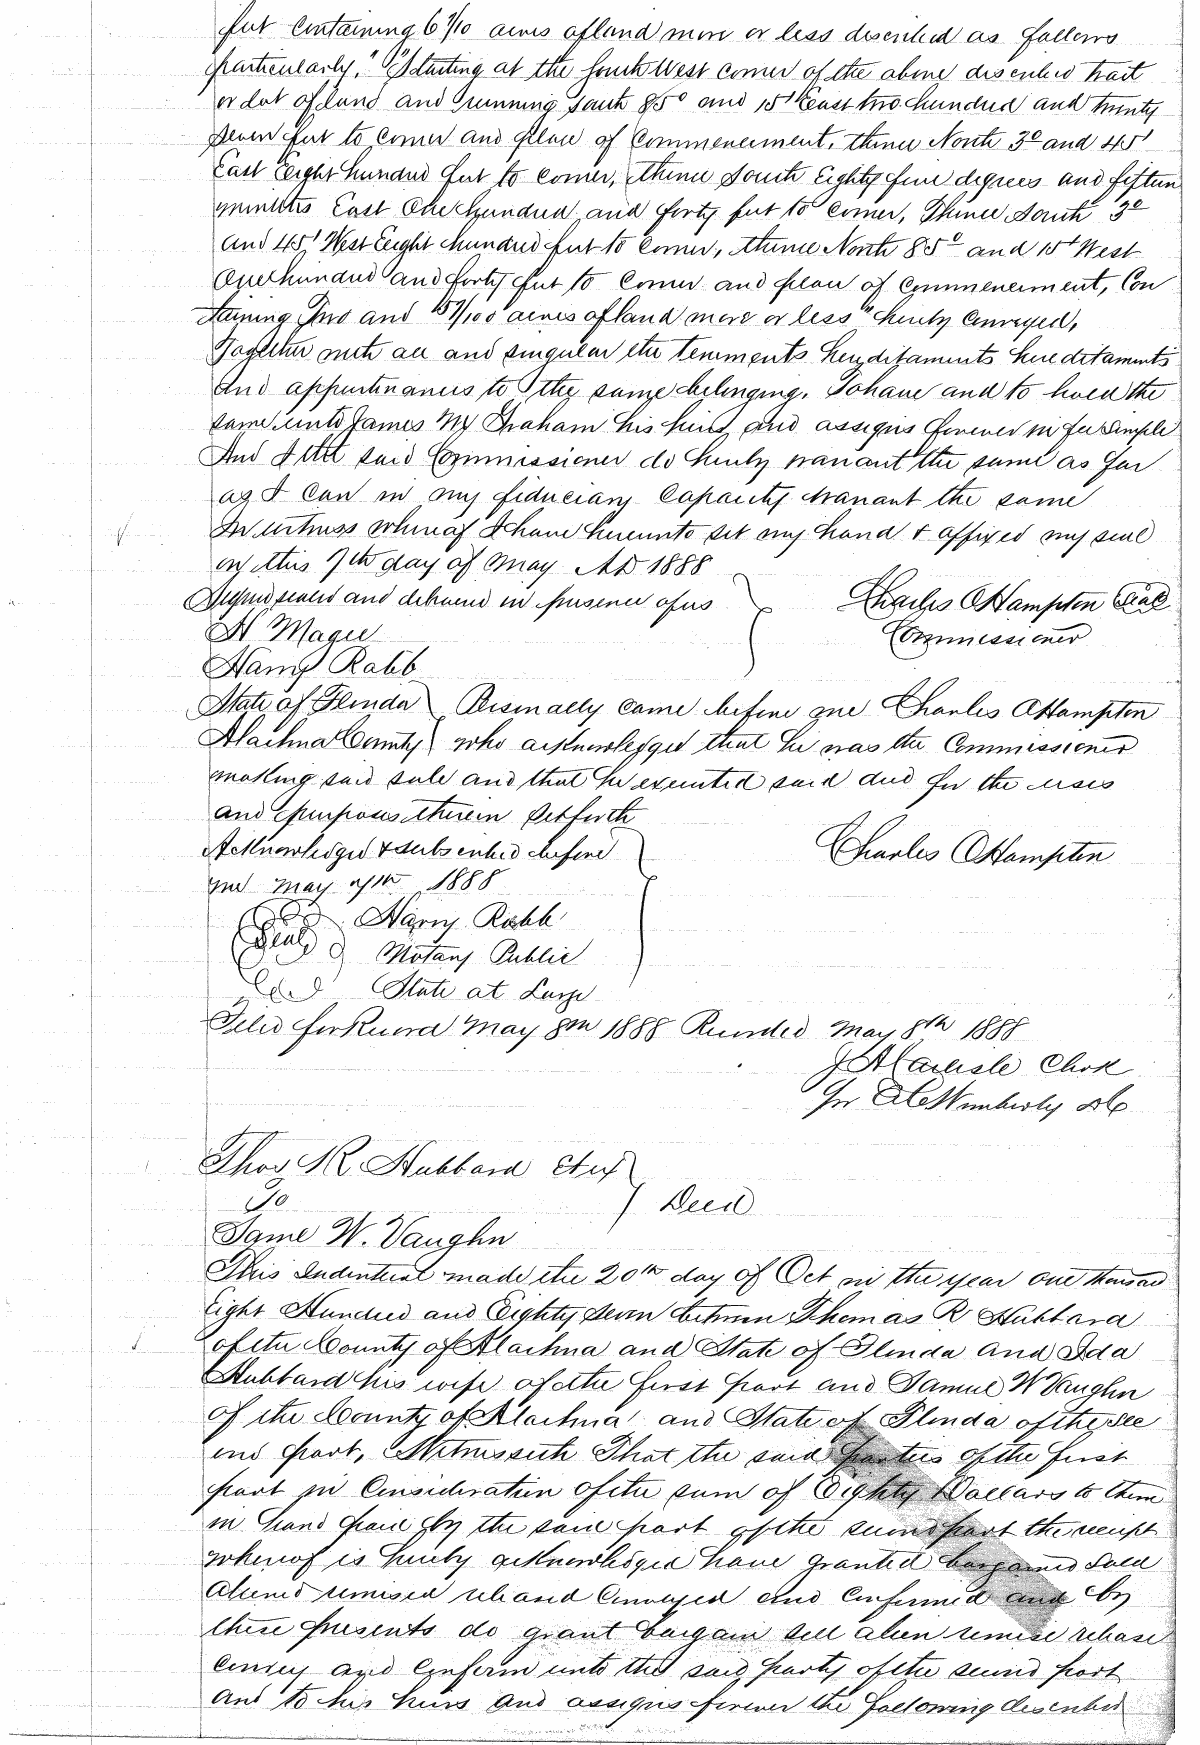 feet containing 6 7/10 acres of land more or less described as follows
particularly, "Starting at the South West corner of the above described trait
or lot of land and running South 85° and 15' East two hundred and twenty
seven feet to corner and place of commencement, thence North 3° and 45'
East Eight hundred feet to corner, thence South Eighty five degrees and fifteen
minutes East One hundred and forty feet to corner, Thence South 3°
and 45' West Eight hundred feet to corner, thence North 85° and 15' West
One hundred and forty feet to corner and place of commencement, Con
taining Two and 57/100 acres of land more or less" hereby conveyed,
Together with all and singular the tenements hereditaments hereditaments
and appurtenances to the same belonging. To have and to hold the
same unto James M Graham his heirs and assigns forever in fee simple
And I the said Commissioner do hereby warrant the same as far
as I can in my fiduciary capacity warrant the same
In witness whereof I have hereunto set my hand & affixed my seal
on this 7th day of May AD 1888
Signed sealed and delivered in presence of us Charles O Hampton Seal
H Magee Commissioner
Harry Rabb
State of Florida Personally came before me Charles O Hampton
Alachua County who acknowledged that he was the Commissioner
making said sale and that he executed said deed for the uses
and purposes therein set forth
Acknowledged & subscribed before Charles O Hampton
me May 7th 1888
Harry Rabb
Seal Notary Public
State at Large
Filed for Record May 8th 1888 Recorded May 8th 1888
J A Carlisle Clerk
Per Wimberly DC
Thos R. Hubbard & ux
To Deed
Same W. Vaughn
This Indenture made the 20th day of Oct in the year one thousand
Eight Hundred and Eighty Seven between Thomas R Hubbard
of the County of Alachua and State of Florida and Ida
Hubbard his wife of the first part and Samuel W Vaughn
of the County of Alachua and State of Florida of the sec
ond part, Witnesseth That the said parties of the first
part in Consideration of the sum of Eighty Dollars to them
in hand paid by the said part of the second part the receipt
whereof is hereby acknowledged have granted bargained sold
aliened remised released conveyed and confirmed and by
these presents do grant bargain sell alien remise release
convey and confirm unto the said party of the second part
and to his heirs and assigns forever the following described